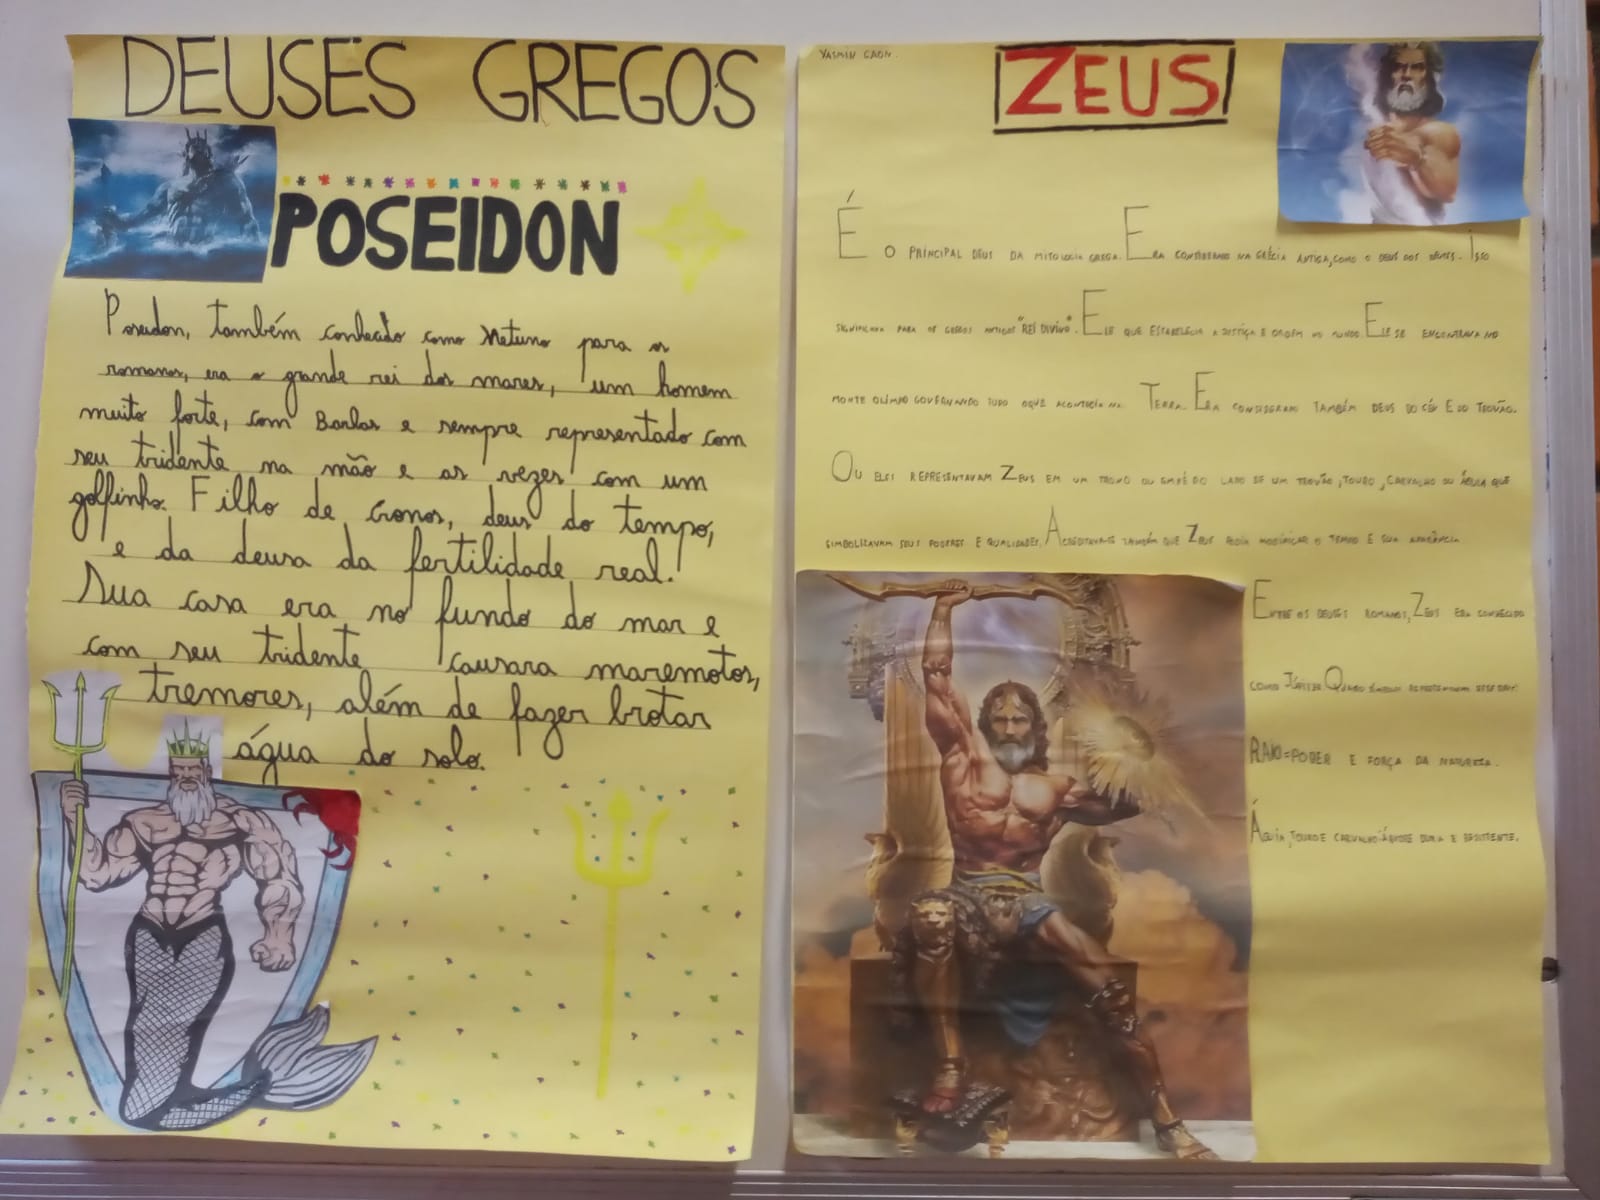 DEUSES GREGOS
POSEIDON
Poseidon, também conhecido como Netuno para os
romanos, era o grande rei dos mares, um homem
muito forte, com Barbas e sempre representado com
seu tridente na mão e as vezes com um
golfinho. Filho de Cronos, deus do tempo,
e da deusa da fertilidade real.
Sua casa era no fundo do mar e
com seu tridente causara maremotos,
tremores, além de fazer brotar
água do solo.
YASMIN CAON.
ZEUS
É O PRINCIPAL DEUS DA MITOLOGIA GREGA. ERA CONSIDERADO NA GRÉCIA ANTIGA, COMO O DEUS DOS DEUSES. ISSO
SIGNIFICAVA PARA OS GREGOS ANTIGOS "REI DIVINO". ELE QUE ESTABELECIA A JUSTIÇA E ORDEM NO MUNDO. ELE SE ENCONTRAVA NO
MONTE OLIMPO GOVERNANDO TUDO OQUE ACONTECIA NA TERRA. ERA CONSIDERADO TAMBÉM DEUS DO CÉU E DO TROVÃO.
OU ELES REPRESENTAVAM ZEUS EM UM TRONO OU EMPÉ DO LADO DE UM TROVÃO, TOURO, CARVALHO OU ÁGUIA QUE
SIMBOLIZAVAM SEUS PODERES E QUALIDADES. ACREDITAVAM TAMBÉM QUE ZEUS PODIA MODIFICAR O TEMPO E SUA APARÊNCIA
ENTRE OS DEUSES ROMANOS, ZEUS ERA CONHECIDO
COMO JÚPITER
RAIO=PODER E FORÇA DA NATUREZA.
ÁGUIA, TOURO E CARVALHO-ÁRVORE DURA E RESISTENTE.